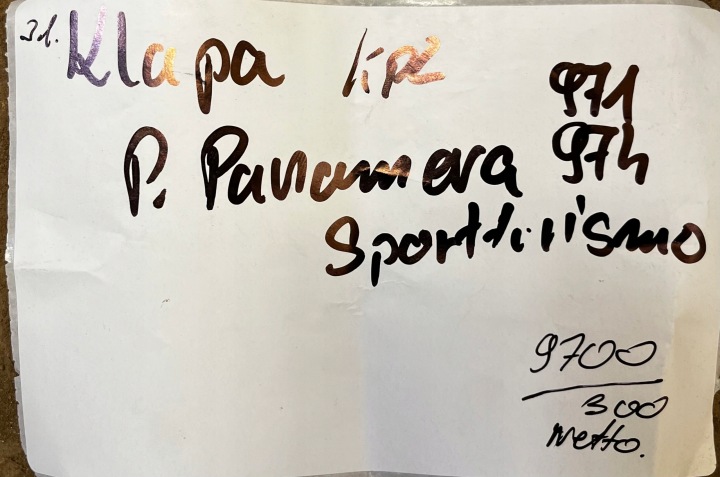 31. Klapa
971
P. Panamera 974
Sportturismo
9700
300
netto.